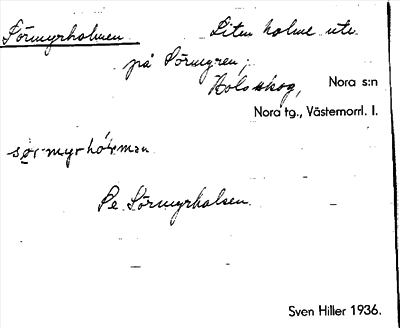 Sörmyrholmen Liten holme ute
på Sörmyren;
Hólsskog, Nora s:n
Nora tg., Västernorrl. l.
Pe. Sörmyrholsen.
Sven Hiller 1936.